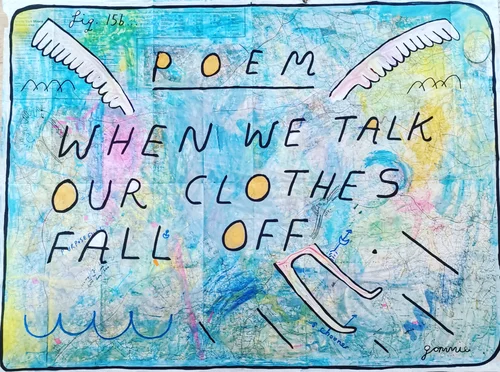 fig. 156
POEM
WHEN WE TALK
OUR CLOTHES
FALL OFF